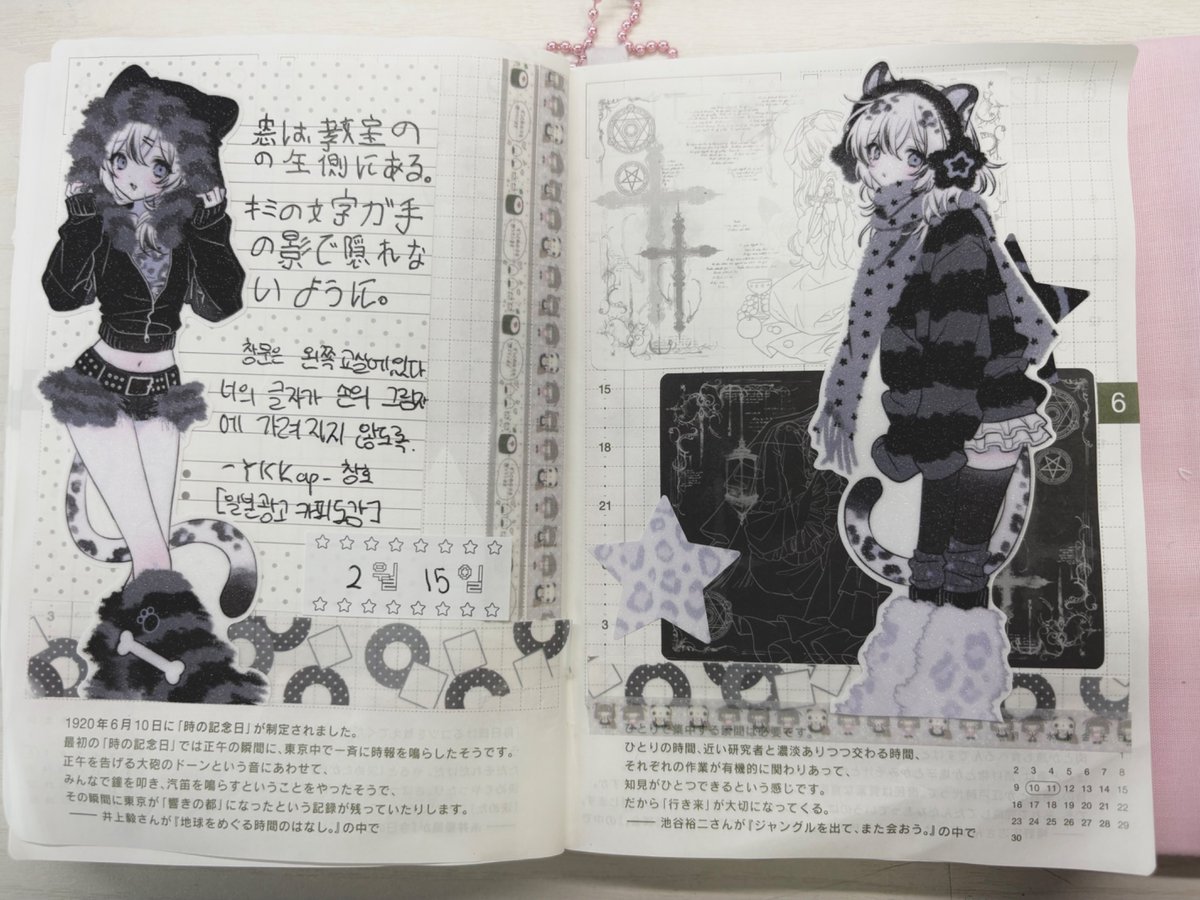 窓は教室の
の左側にある。
キミの文字ガ手
の影で隠れな
いように。
창문은 왼쪽 교실에 있다
너의 글자가 손의 그림자
에 가려지지 않도록.
-YKKap- 창호
[일본광고 카피도감]
2월 15일
3
1920年6月10日に「時の記念日」が制定されました。
最初の「時の記念日」では正午の瞬間に、東京中で一斉に時報を鳴らしたそうです。
正午を告げる大砲のドーンという音にあわせて、
みんなで鐘を叩き、汽笛を鳴らすということをやったそうで、
その瞬間に東京が「響きの都」になったという記録が残っていたりします。
—— 井上毅さんが『地球をめぐる時間のはなし。』の中で
15
18
21
3
6
ひとりで集中する瞬間は必要です。
ひとりの時間、近い研究者と濃淡ありつつ交わる時間、
それぞれの作業が有機的に関わりあって、
知見がひとつできるという感じです。
だから「行き来」が大切になってくる。
—— 池谷裕二さんが『ジャングルを出て、また会おう。』の中で
2 3 4 5 6 7 8
9 10 11 12 13 14 15
16 17 18 19 20 21 22
23 24 25 26 27 28 29
30